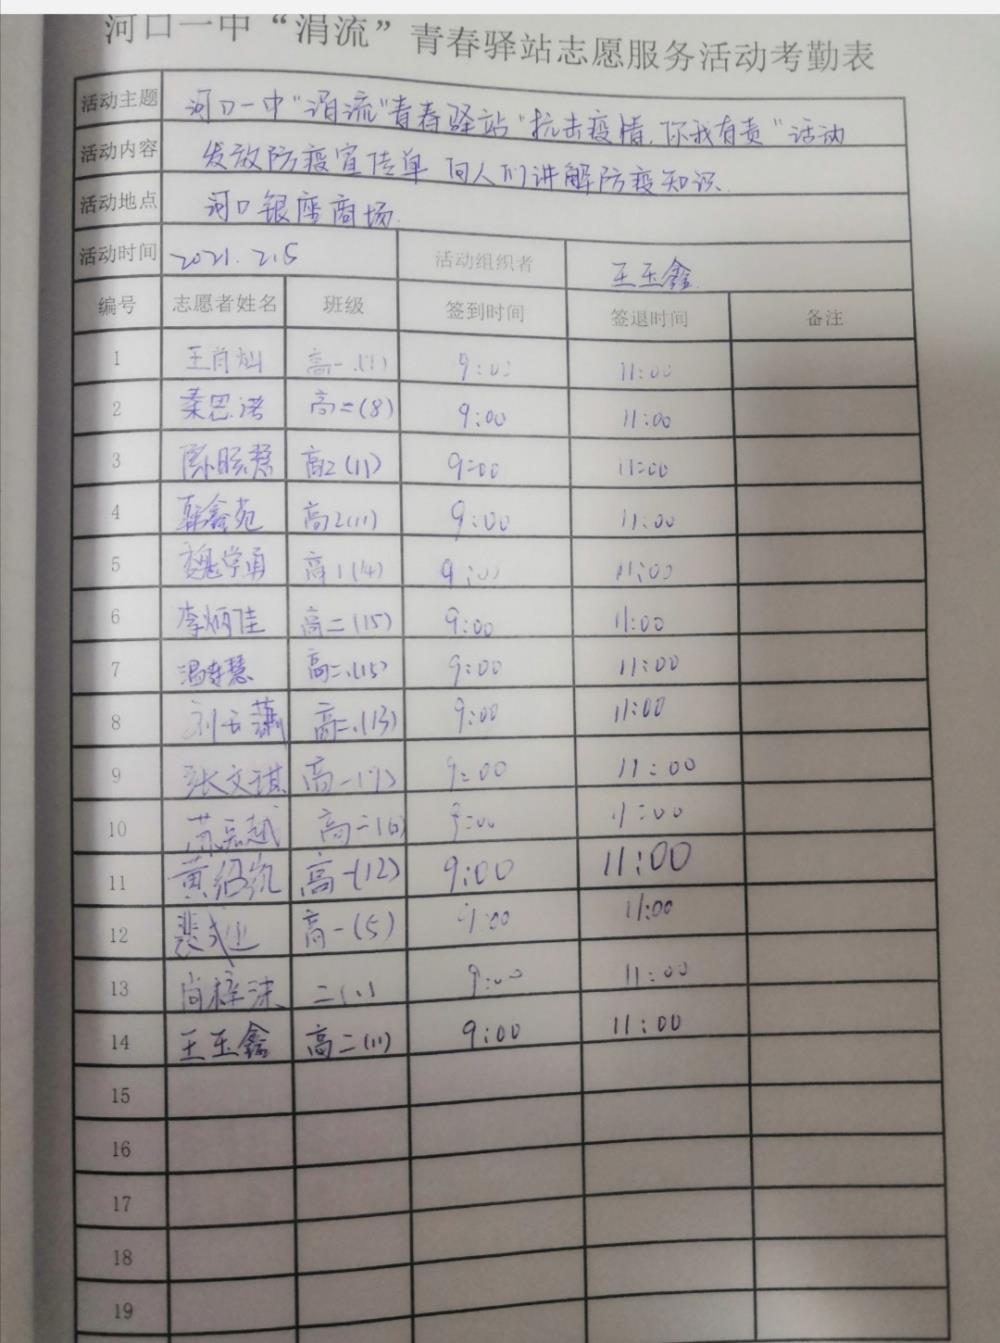 河口一中“涓流”青春驿站志愿服务活动考勤表
活动主题 河口一中“涓流”青春驿站“抗击疫情,你我有责”活动
活动内容 发放防疫宣传单 向人们讲解防疫知识.
活动地点 河口银座商场.
活动时间 2021.2.5 活动组织者 王玉鑫
编号 志愿者姓名 班级 签到时间 签退时间 备注
1 王肖灿 高一.(1) 9:00 11:00
2 桑思诺 高二(8) 9:00 11:00
3 高2(11) 9:00 11:00
4 高2(11) 9:00 11:00
5 魏学勇 高1(14) 9:00 11:00
6 李炳佳 高二(15) 9:00 11:00
7 高二.(15) 9:00 11:00
8 高二.(13) 9:00 11:00
9 张文琪 高一(7) 9:00 11:00
10 高二(6) 9:00 11:00
11 黄绍凯 高一(12) 9:00 11:00
12 高一(5) 9:00 11:00
13 尚梓沫 9:00 11:00
14 王玉鑫 高二(11) 9:00 11:00
15
16
17
18
19